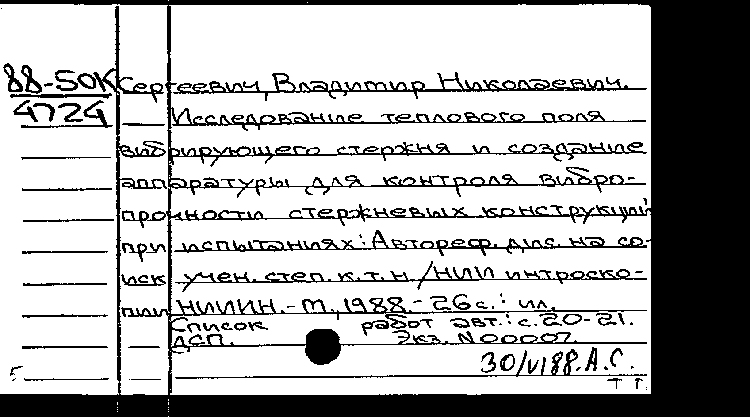 88-50К Сергеевич, Владимир Николаевич.
4724 Исследование теплового поля
вибрирующего стержня и создание
аппаратуры для контроля вибро-
прочности стержневых конструкций
при испытаниях: Автореф. дис. на со-
иск учен. степ. к.т.н /НИИ интроско-
пии НИИИН.-М., 1988.-26с.: ил.
Список работ авт.: с.20-21.
ДСП. Экз. N00007.
30/VI88.А.С.
Т Т